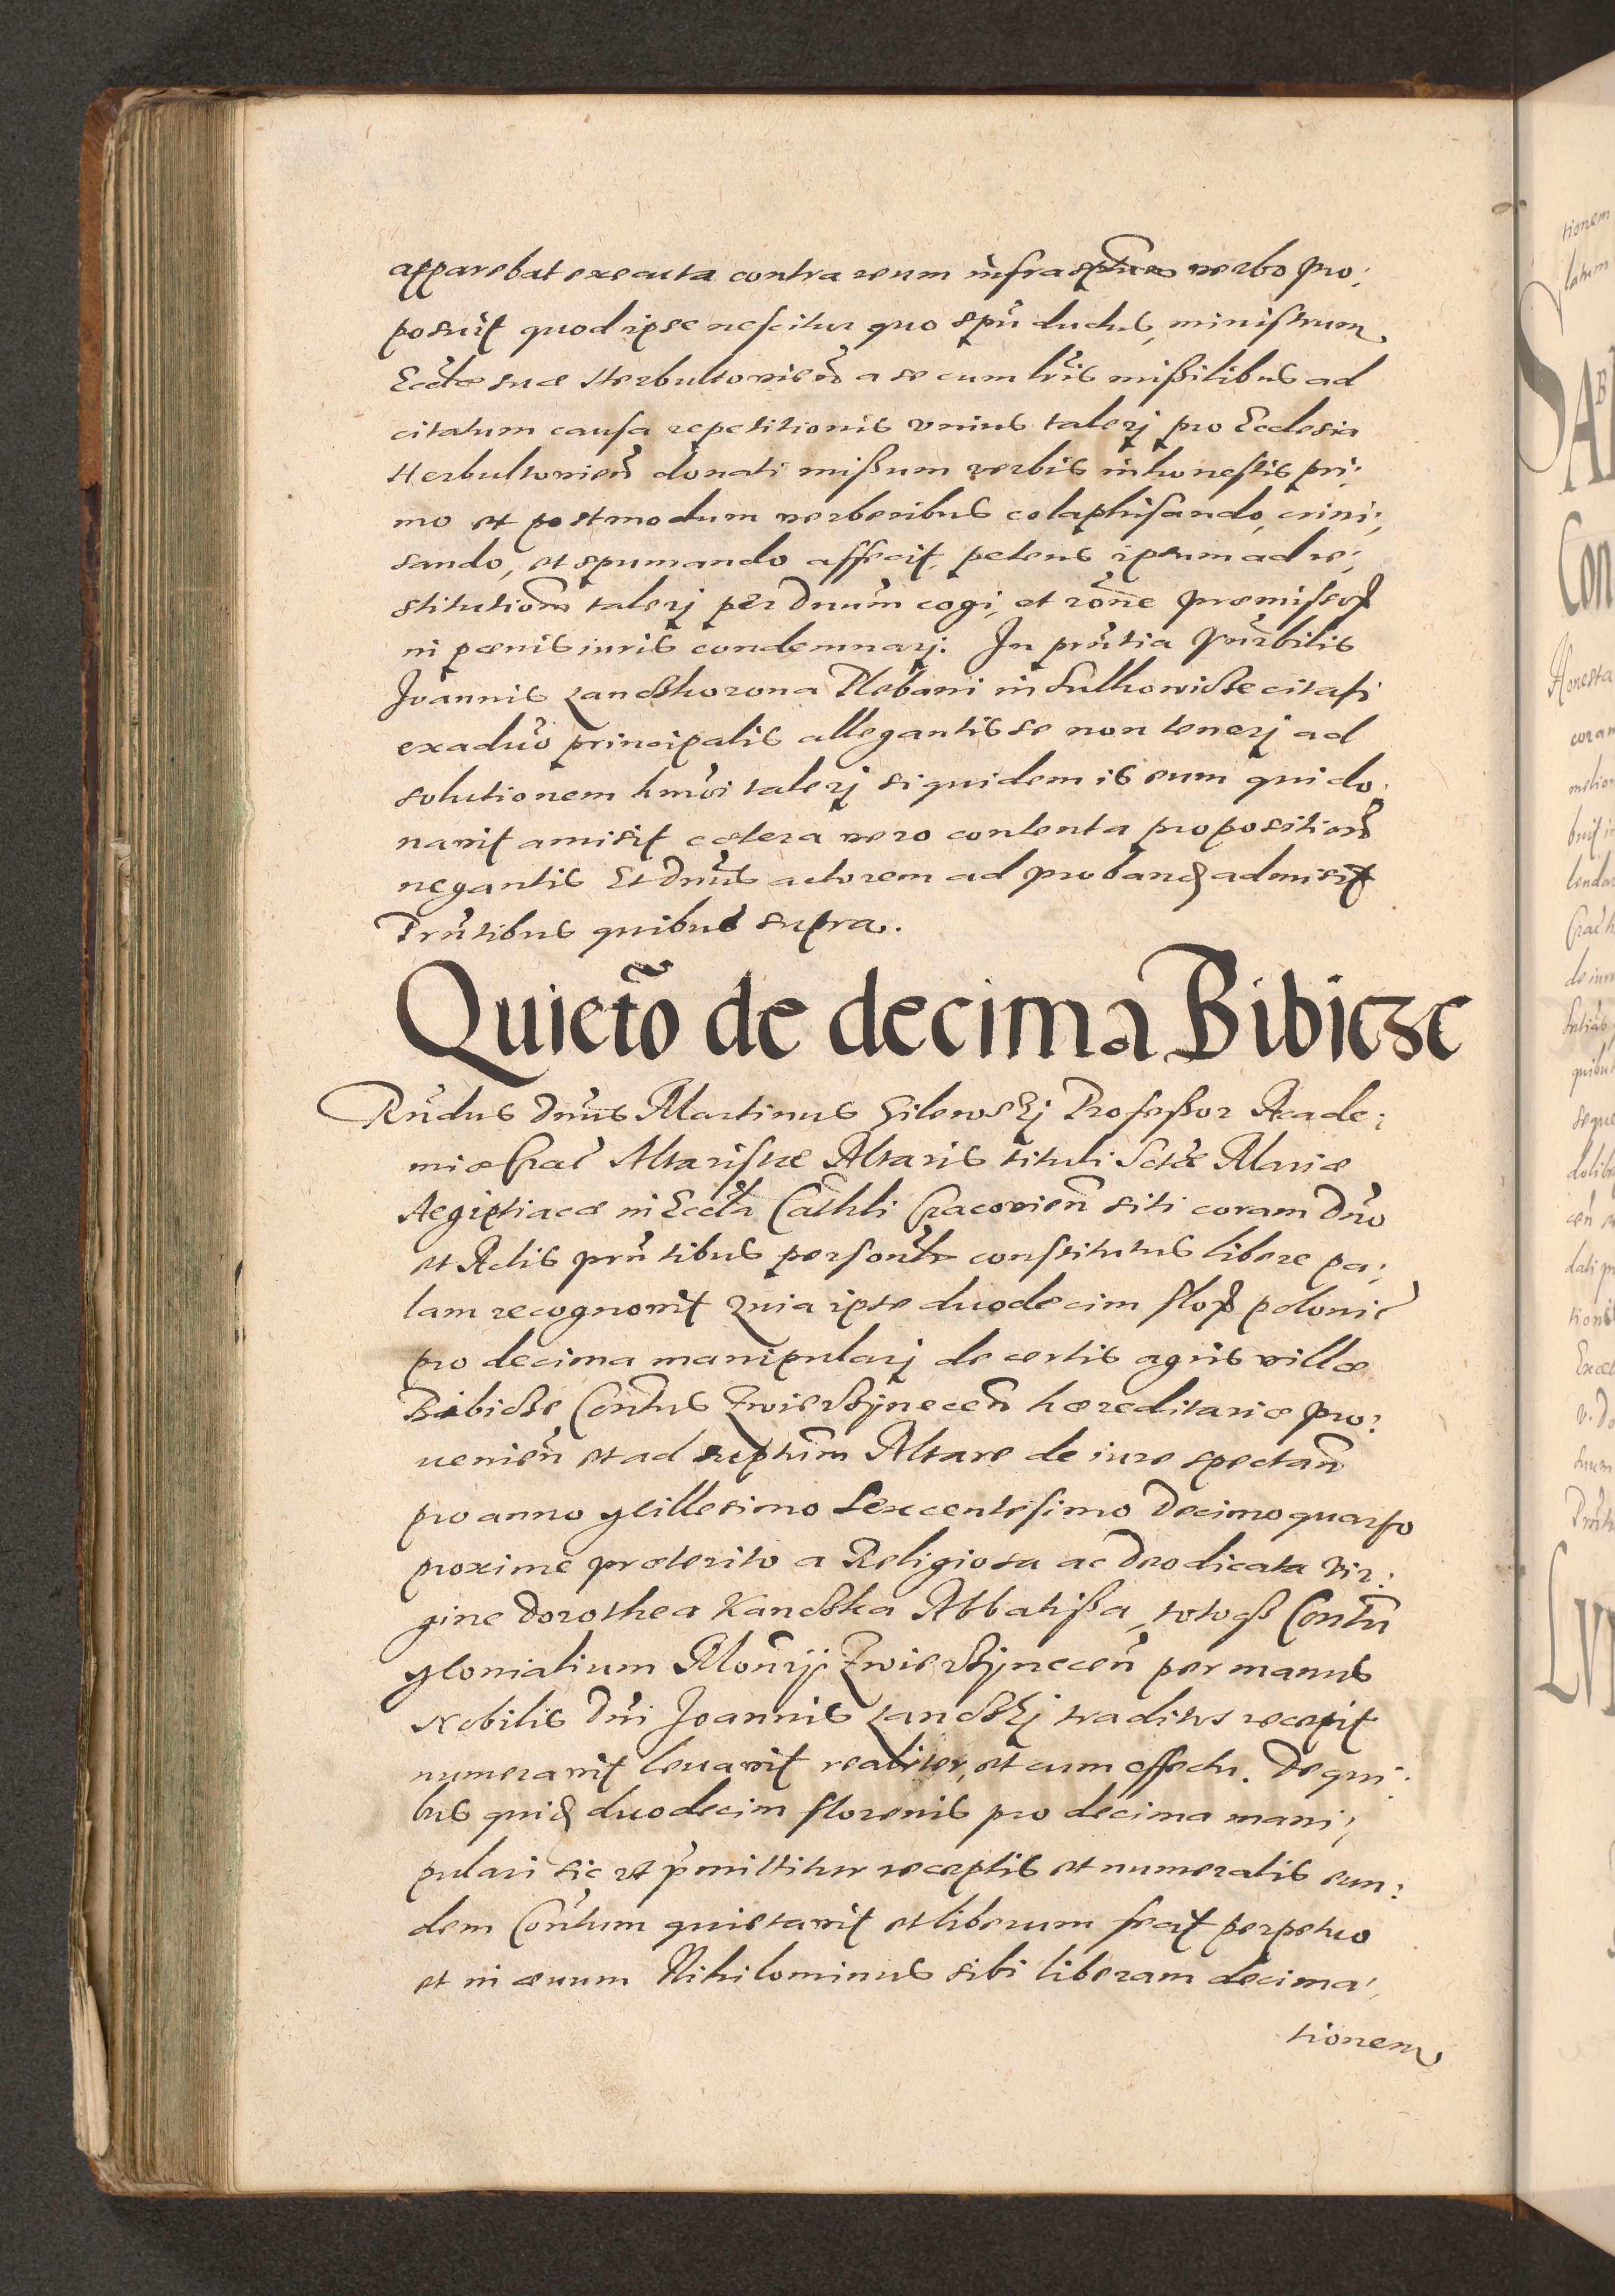 apparebat executa contra reum infrascptum verbo pro:
posuit quod ipse nescitur quo spu ductus, ministrum
Eccłae suae Herbultovien̄ a se cum lr̄is missilibus ad
citatum causa repetitionis unius talerj pro Ecclesia
Herbultovien̄ donati missum verbis inhonestis pri:
mo et postmodum verberibus colaphisando, crini:
sando, et spumando affecit, petens ipsum ad re:
stitutionē talerj per Dnūm cogi, et rōne praemissoꝝ
in paenis iuris condemnarj. In prn̄tia Vnr̄bilis
Joannis Lanczkorona Plebani in Sulkowicze citati
ex aduō principalis allegantis se non tenerj ad
solutionem hmōi talerj siquidem is eum qui do:
navit amisit caetera vero contenta propositionē
negantis Et Dnūs actorem ad proband admisit
Prn̄tibus quibus supra.
Quietō de decima Bibicze
Rn̄dus Dnūs Martinus Gilewskj Professor Acade:
miae Crac̄ Altaristae Altaris tituli Sctāe Mariae
Aegiptiacae in Eccłā Cāthłi Cracovien̄ siti coram Dnō
et Actis prn̄tibus personłr constitutus libere pa:
lam recognovit Quia ipse duodecim floꝝ polonic̄
pro decima manipularj de certis agris villae
Bibicze Conn̄tus Zwierzijnecen̄ haereditariae pro:
uenien̄ et ad suptūm Altare de iure spectan̄
pro anno Millesimo Sexcentesimo Decimo quarto
proxime praeterito a Religiosa ac Deo dicata Vir:
gine Dorothea Kanczka Abbatissa, totoqȝ Conn̄tu
Monialium Monr̄ij Zwierzijnecen̄ per manus
Nobilis Dn̄i Joannis Lanczkj traditos recepit
numeravit levavit realiter, et cum effectu. De qui:
bus quid duodecim florenis pro decima mani:
pulari sic ut p̄mittitur receptis et numeratis eun:
dem Conn̄tum quietavit et liberum fecit perpetuo
et in aevum Nihilominus sibi liberam decima:
tionem